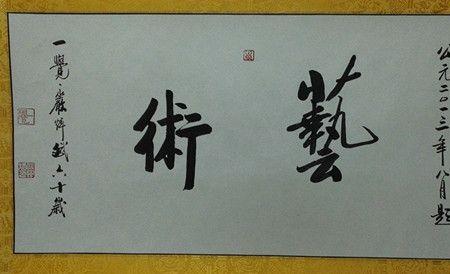 公元二〇一三年八月題
藝
術
一覺 嚴 六十歲